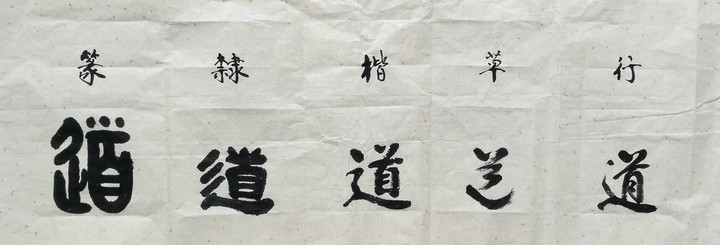 篆 隸 楷 草 行
道 道 道 道 道